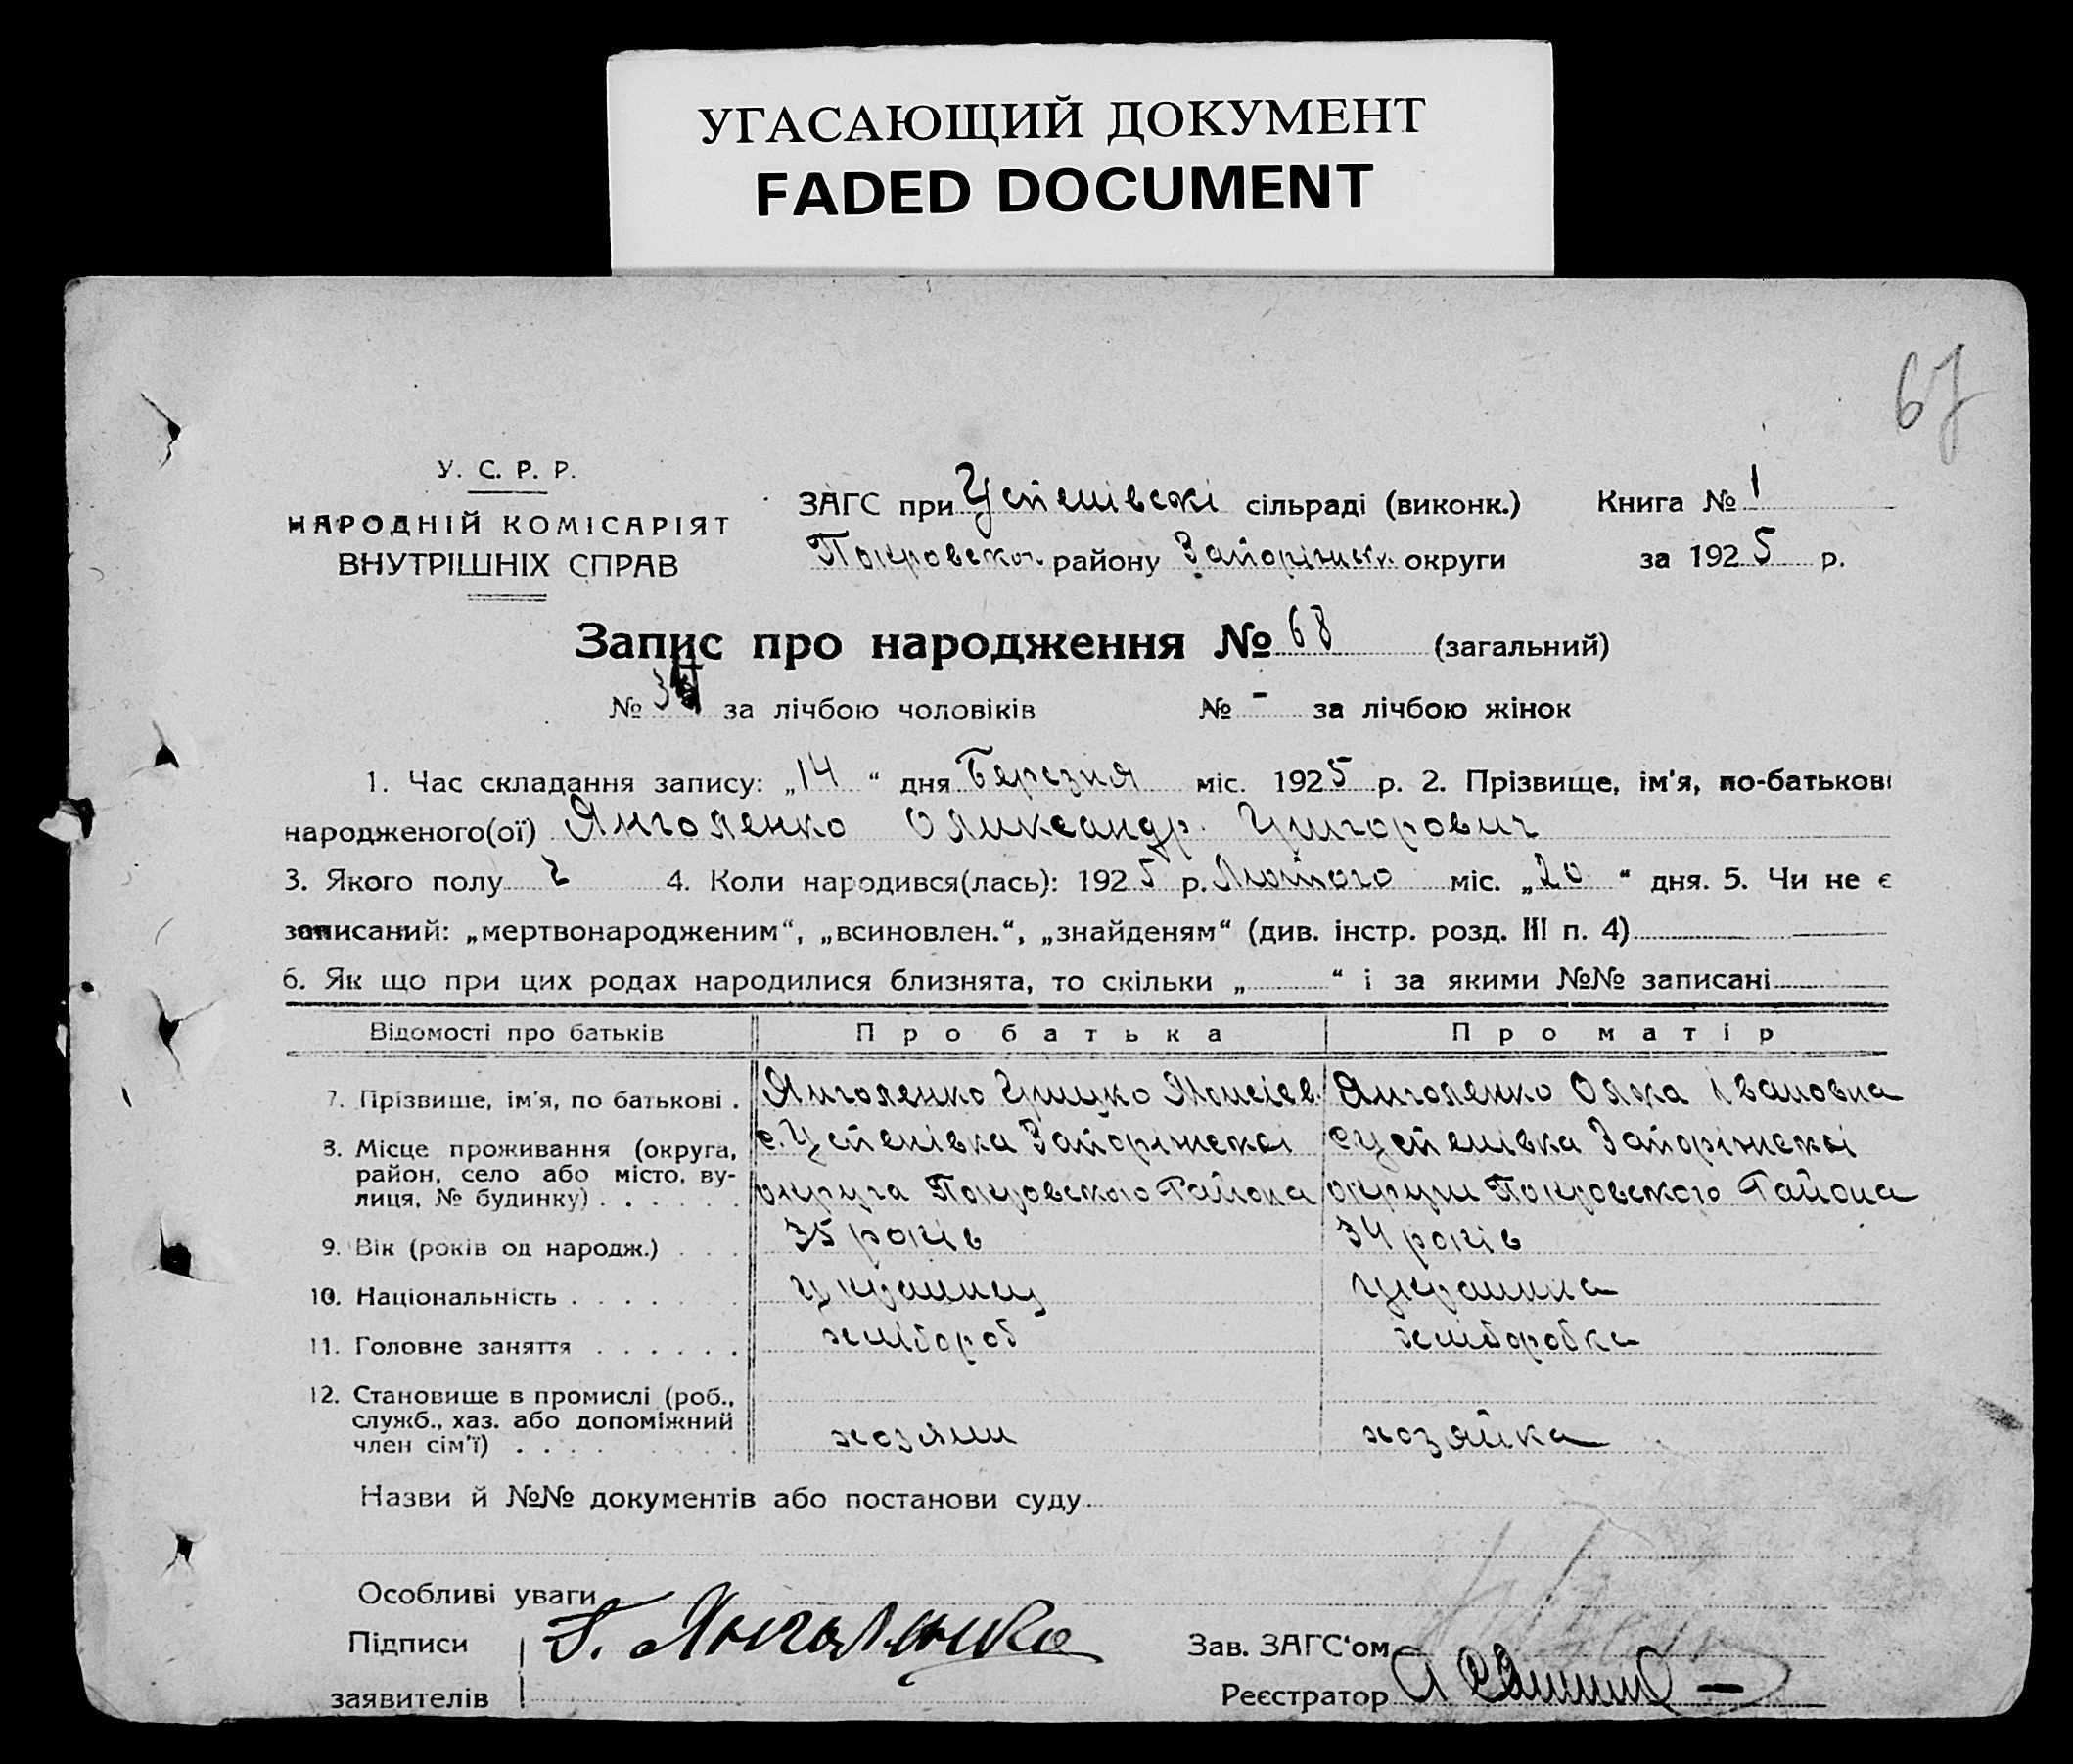 УГАСАЮЩИЙ ДОКУМЕНТ
FADED DOCUMENT
67
У. С. Р. Р.
НАРОДНІЙ КОМІСАРІЯТ
ВНУТРІШНІХ СПРАВ
ЗАГС при Успенівскі сільраді (виконк.) Книга № 1
Покровског району Запоріжськ. округи за 1925 р.
Запис про народження № 68 (загальний)
№ за лічбою чоловіків № - за лічбою жінок
1. Час складання запису: „14“ дня Березня міс. 1925 р. 2. Прізвище, ім'я, по-батькові
народженого(ої) Янголенко Олександр Григорович
3. Якого полу ч 4. Коли народився(лась): 1925 р. Лютого міс. „20“ дня. 5. Чи не є
записаний: „мертвонародженим“, „всиновлен.“, „знайденям“ (див. інстр. розд. III п. 4)
6. Як що при цих родах народилися близнята, то скільки „ “ і за якими №№ записані
Відомості про батьків Про батька Про матір
7. Прізвище, ім'я, по батькові . Янголенко Грицко Моисіев. Янголенко Олха Івановна
8. Місце проживання (округа, с. Успенівка Запоріжскоі с Успенівка Запоріжскоі
район, село або місто, ву-
лиця, № будинку) . . . . . . округа Покровского Района округи Покровского Района
9. Вік (років од народж.) . . . 35 років 34 років
10. Національність . . . . . . . украинец украинка
11. Головне заняття . . . . . . хлібороб хліборобка
12. Становище в промислі (роб.,
служб., хаз. або допоміжний
член сім'ї) . . . . хозяин хозяйка
Назви й №№ документів або постанови суду
Особливі уваги
Підписи Г. Янголенко Зав. ЗАГС'ом
заявителів Реєстратор